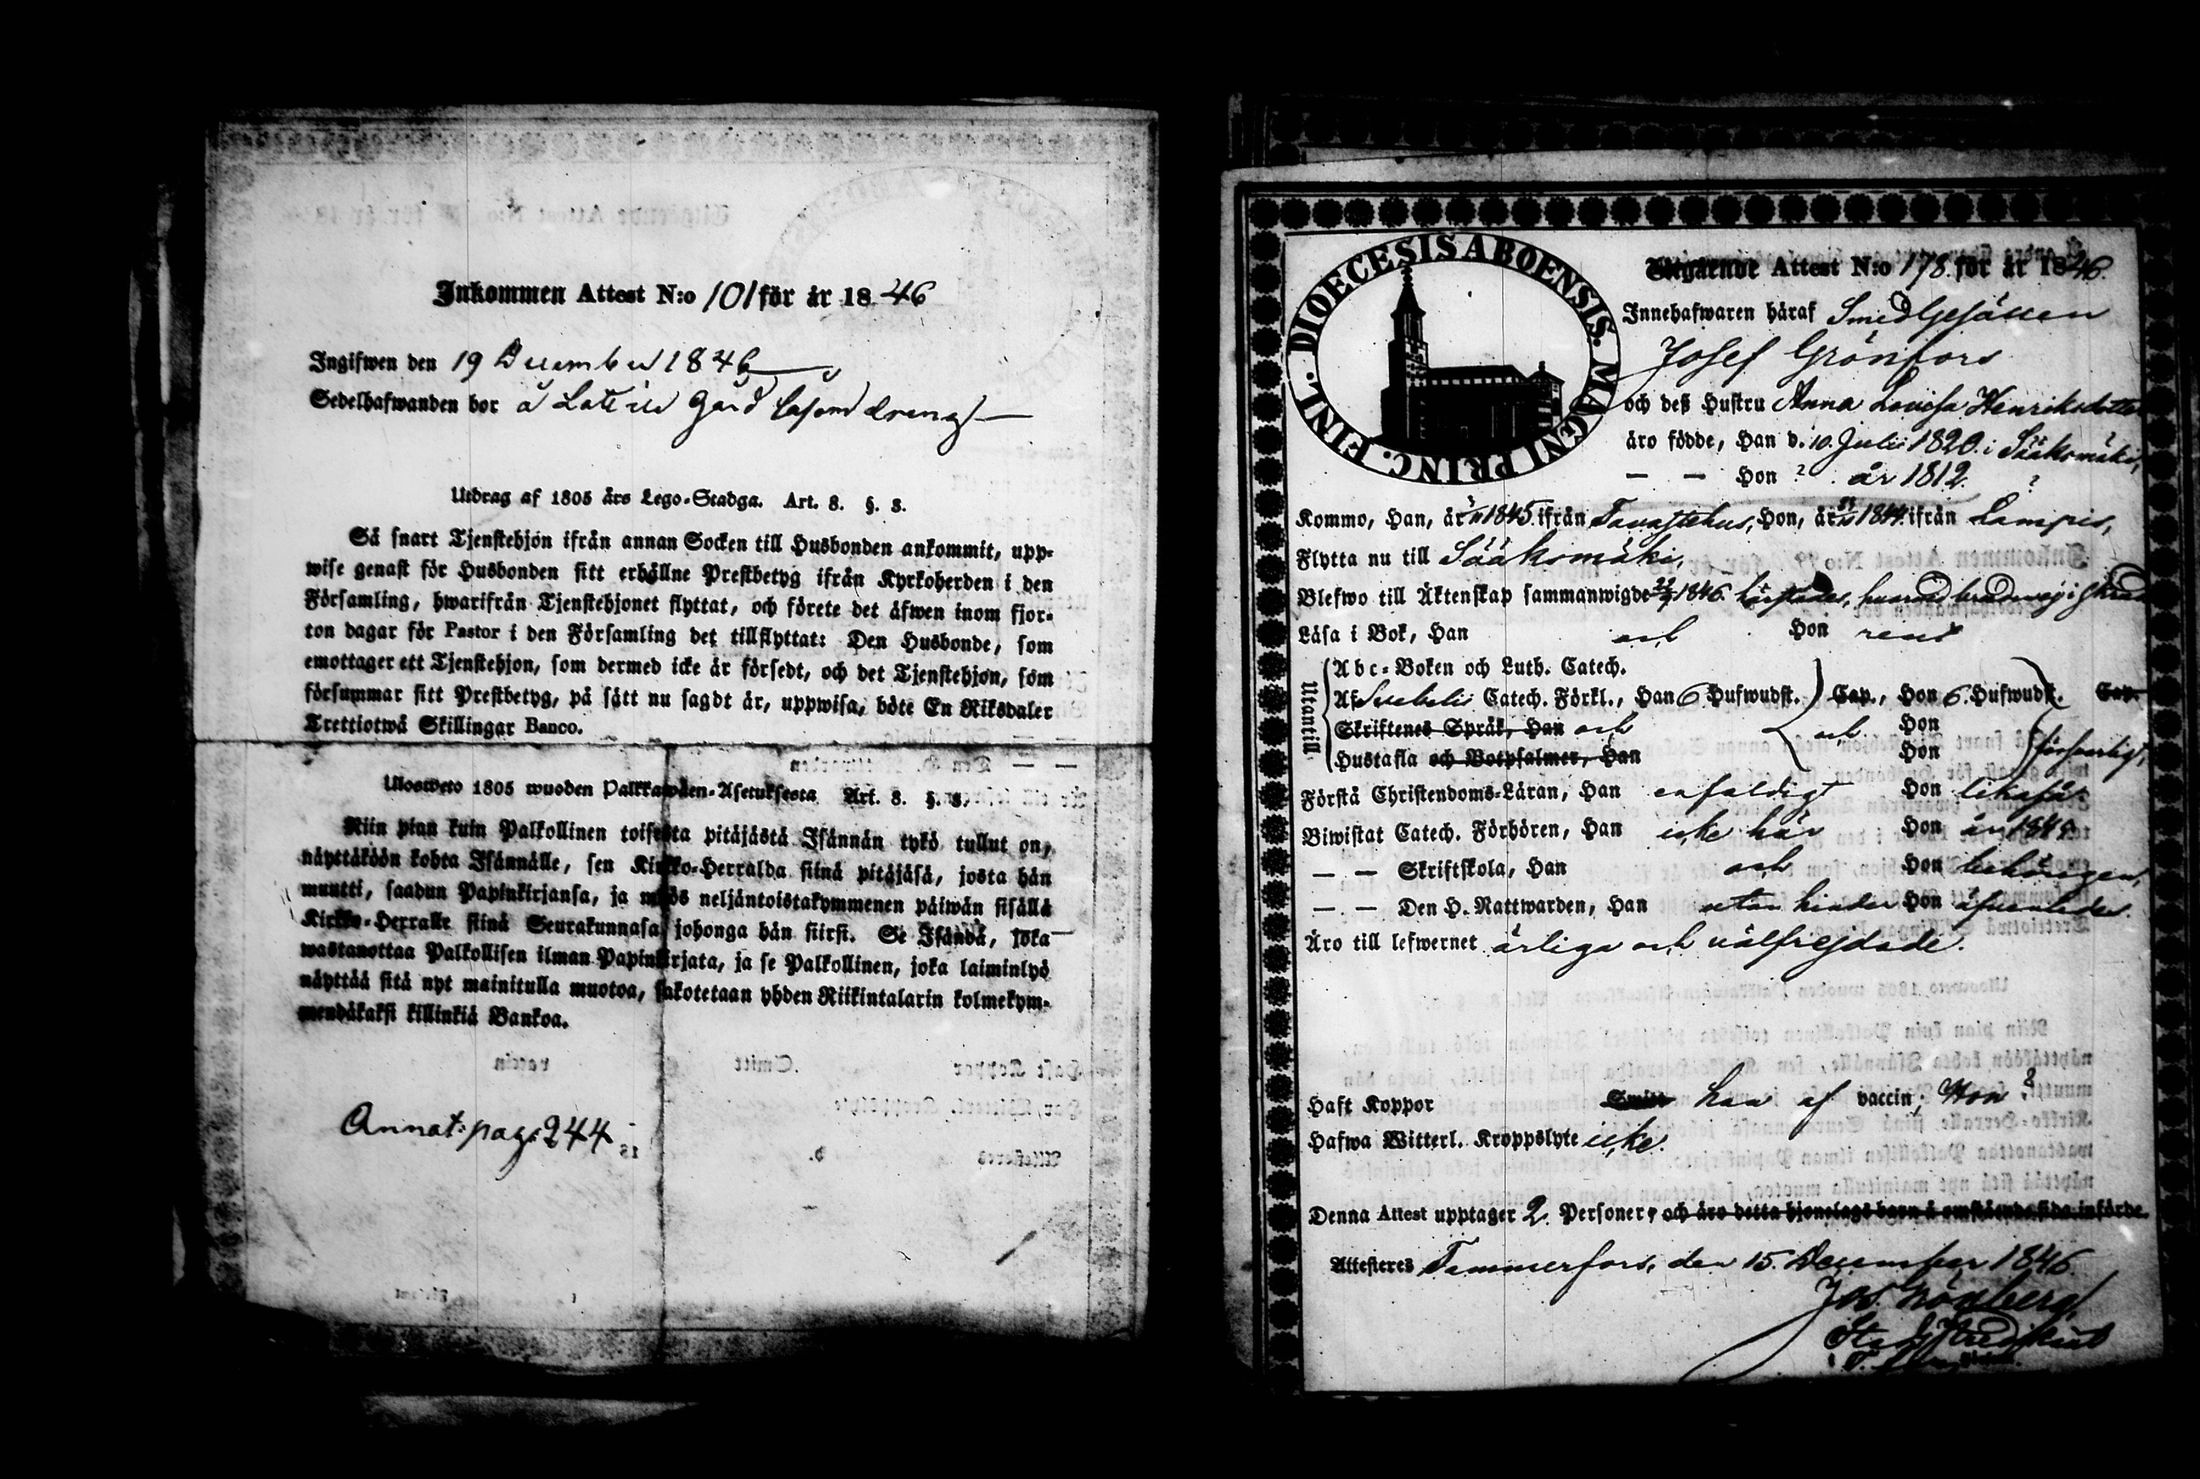 Inkommen Attest N:o 101 för år 1846
Ingifwen den 19 December 1846
Sedelhafwanden bor å gård som dreng
Utdrag af 1805 års Lego-Stadga. Art. 8. §. 8.
Så snart Tjenstehjon ifrån annan Socken till Husbonden ankommit, upp-
wise genast för Husbonden sitt erhållne Prestbetyg ifrån Kyrkoherden i den
Församling, hwarifrån Tjenstehjonet flyttat, och förete det äfwen inom fjor-
ton dagar för Pastor i den Församling det tillflyttat: Den Husbonde, som
emottager ett Tjenstehjon, som dermed icke är försedt, och det Tjenstehjon, som
försummar sitt Prestbetyg, på sätt nu sagdt är, uppwisa, böte En Riksdaler
Trettiotwå Skillingar Banco.
Ulosweto 1805 wuoden Palkkawäen-Asetuksesta Art. 8. §. 8.
Niin pian kuin Palkollinen toisesta pitäjästä Isännän tykö tullut on,
näyttäköön kohta Isännälle, sen Kirkko-Herralda siinä pitäjäsä, josta hän
muutti, saadun Papinkirjansa, ja myös neljäntoistakymmenen päiwän sisällä
Kirkko-Herralle siinä Seurakunnasa johonga hän siirsi. Se Isändä, joka
wastanottaa Palkollisen ilman Papinkirjata, ja se Palkollinen, joka laiminlyö
näyttää sitä nyt mainitulla muotoa, sakotetaan yhden Riikintalarin kolmekym-
mendäkaksi killinkiä Bankoa.
Annot: pag: 244
DIOECESIS ABOENSIS. MAGNI PRINC. FINL.
Utgående Attest N:o 178 för år 1846.
Innehafwaren häraf Smedgesällen
Josef Grönfors
och deß Hustru Anna Lovisa Henriksdotter
äro födde, Han d. 10 Julii 1820 i Sääksmäki,
— — Hon ? år 1812 ?
Kommo, Han, år 1845 ifrån Tavastehus, Hon, år 1844 ifrån Lampis,
Flytta nu till Sääksmäki,
Blefwo till Äktenskap sammanwigde 1846
Läsa i Bok, Han och Hon rent
Utantill
Abc-Boken och Luth. Catech.
Af Svebelii Catech. Förkl., Han 6 Hufwudst. Cap., Hon 6. Hufwudst. Cap.
Skriftenes Språk, Han och och Hon
Hustafla och Botpsalmer, Han Hon försvarligt,
Förstå Christendoms-Läran, Han enfaldigt Hon likaså
Biwistat Catech. Förhören, Han icke här Hon år
— — Skriftskola, Han och Hon behörigen,
— — Den H. Nattwarden, Han utan hinder Hon äfvenledes.
Äro till lefwernet ärliga och välfrejdade.
Haft Koppor Smitt han af vaccin; Hon ?
Hafwa Witterl. Kroppslyte icke.
Denna Attest upptager 2. Personer, och äro detta hjonelags barn å omstående sida införde.
Attesteres Tammerfors, den 15. December 1846.
Jos. Grönberg